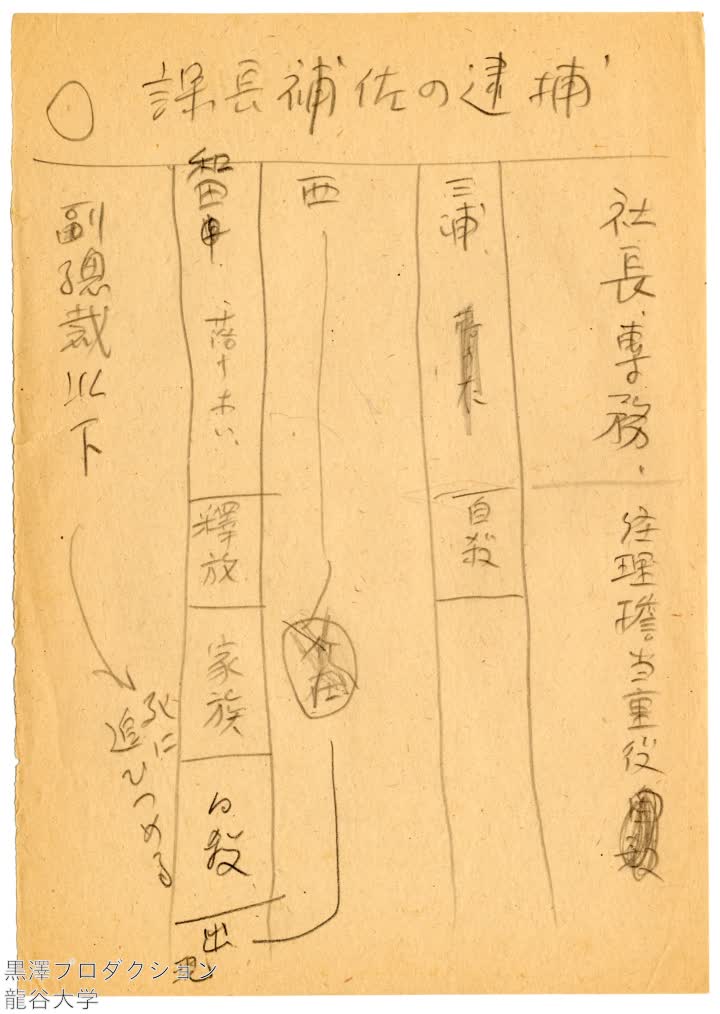 ○ 課長補佐の逮捕
社長、専務、
経理擔当重役
三浦、
自殺
西
和田
落ナオい、
釋放
家族
自殺
出現
副總裁以下
死に
追ひつめる
黒澤プロダクション
龍谷大学